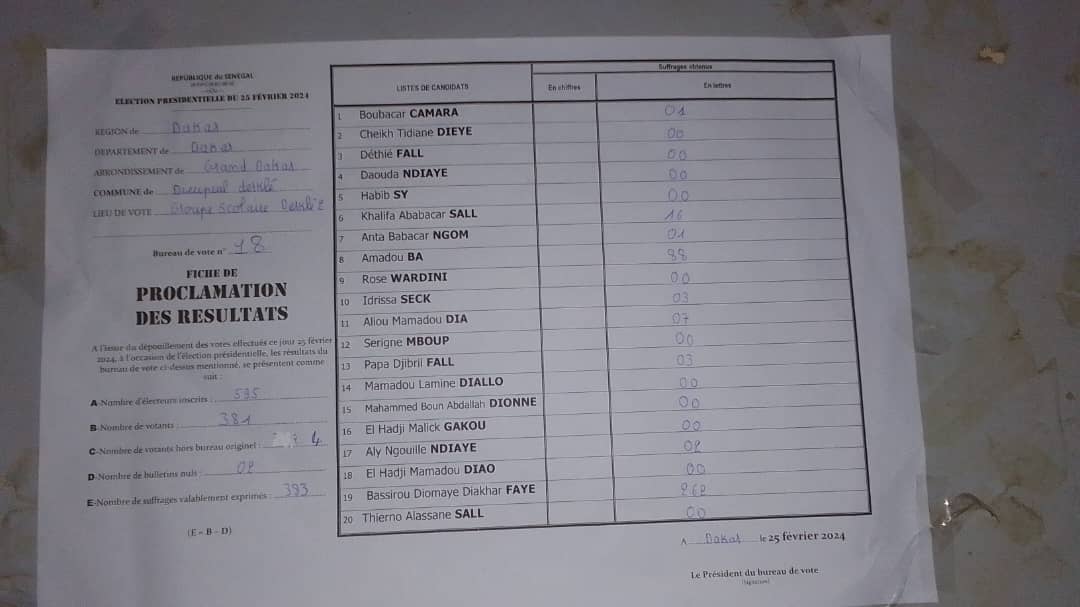 REPUBLIQUE du SENEGAL
ELECTION PRESIDENTIELLE DU 25 FÉVRIER 2024
REGION de Dakar
DEPARTEMENT de Dakar
ARRONDISSEMENT de Grand Dakar
COMMUNE de derklé
LIEU DE VOTE Groupe Scolaire Derklé 2
Bureau de vote n° 18
FICHE DE
PROCLAMATION
DES RESULTATS
A l'issue du dépouillement des votes effectués ce jour 25 février
2024, à l'occasion de l'élection présidentielle, les résultats du
bureau de vote ci-dessus mentionné, se présentent comme
suit :
A-Nombre d'électeurs inscrits : 595
B-Nombre de votants : 381
C-Nombre de votants hors bureau originel : 4
D-Nombre de bulletins nuls : 02
E-Nombre de suffrages valablement exprimés : 383
(E = B - D)
LISTES DE CANDIDATS
Suffrages obtenus
En chiffres En lettres
1 Boubacar CAMARA 01
2 Cheikh Tidiane DIEYE 00
3 Déthié FALL 00
4 Daouda NDIAYE 00
5 Habib SY 00
6 Khalifa Ababacar SALL 16
7 Anta Babacar NGOM 01
8 Amadou BA 88
9 Rose WARDINI 00
10 Idrissa SECK 03
11 Aliou Mamadou DIA 07
12 Serigne MBOUP 00
13 Papa Djibril FALL 03
14 Mamadou Lamine DIALLO 00
15 Mahammed Boun Abdallah DIONNE 00
16 El Hadji Malick GAKOU 00
17 Aly Ngouille NDIAYE 02
18 El Hadji Mamadou DIAO 00
19 Bassirou Diomaye Diakhar FAYE 262
20 Thierno Alassane SALL 00
A Dakar le 25 février 2024
Le Président du bureau de vote
(Signature)